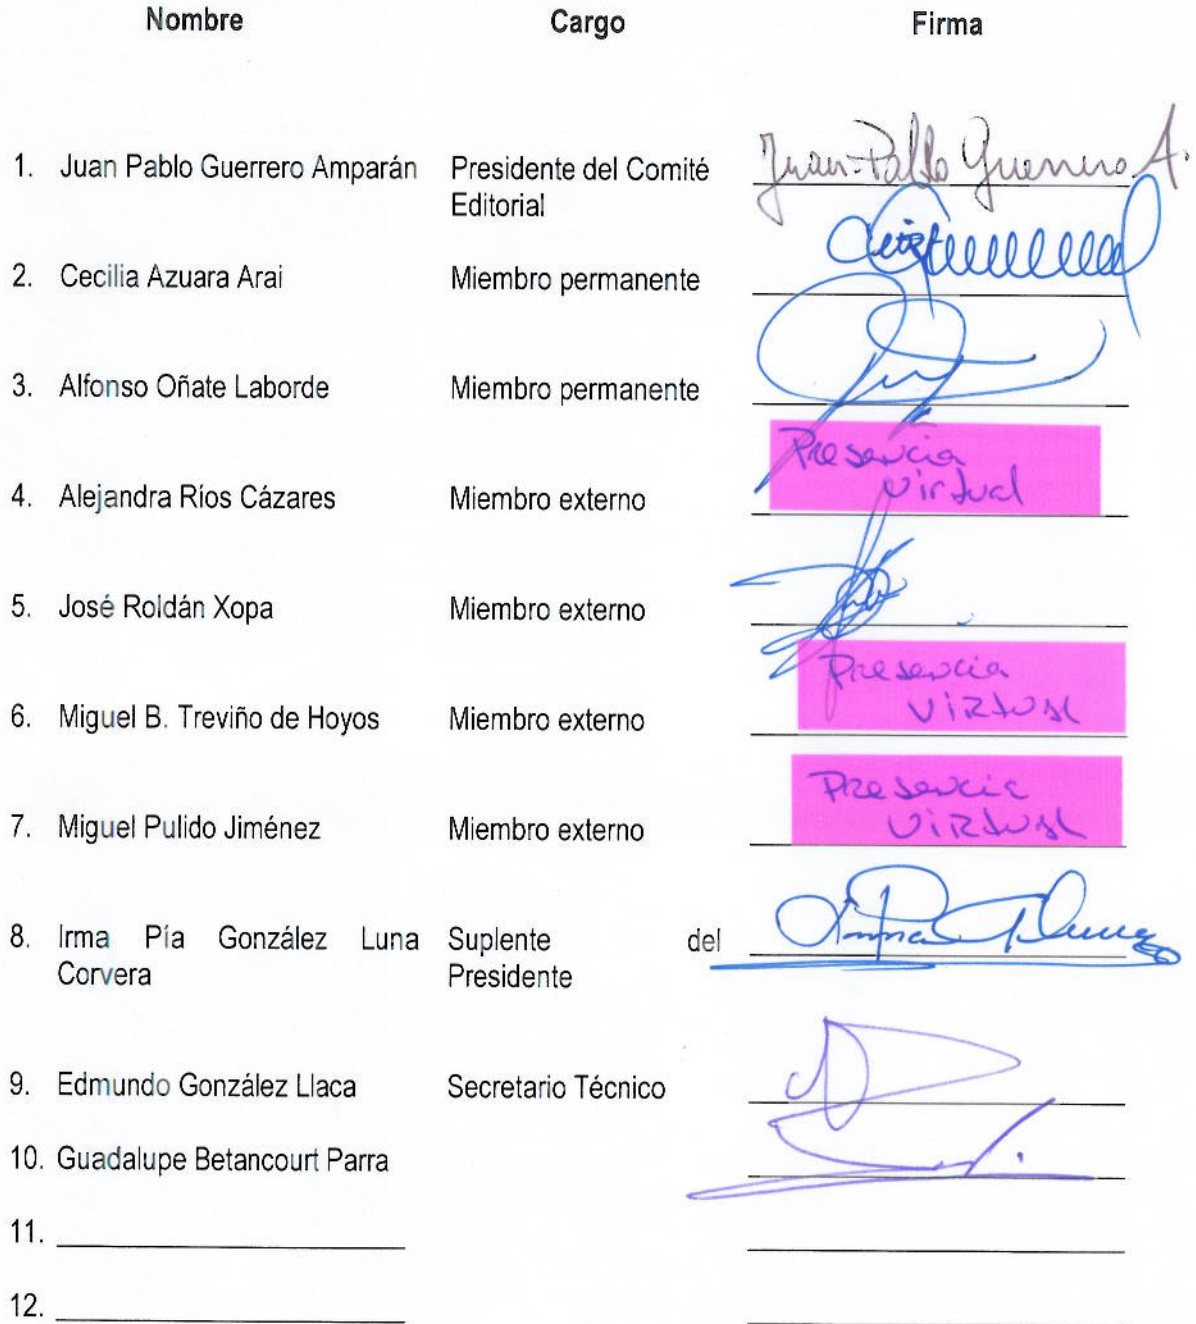 Nombre Cargo Firma
1. Juan Pablo Guerrero Amparán Presidente del Comité Juan-Pablo Guerrero A.
Editorial
2. Cecilia Azuara Arai Miembro permanente
3. Alfonso Oñate Laborde Miembro permanente
Presencia
4. Alejandra Ríos Cázares Miembro externo virtual
5. José Roldán Xopa Miembro externo
Presencia
6. Miguel B. Treviño de Hoyos Miembro externo virtual
Presencia
7. Miguel Pulido Jiménez Miembro externo virtual
8. Irma Pía González Luna Suplente del
Corvera Presidente
9. Edmundo González Llaca Secretario Técnico
10. Guadalupe Betancourt Parra
11.
12.